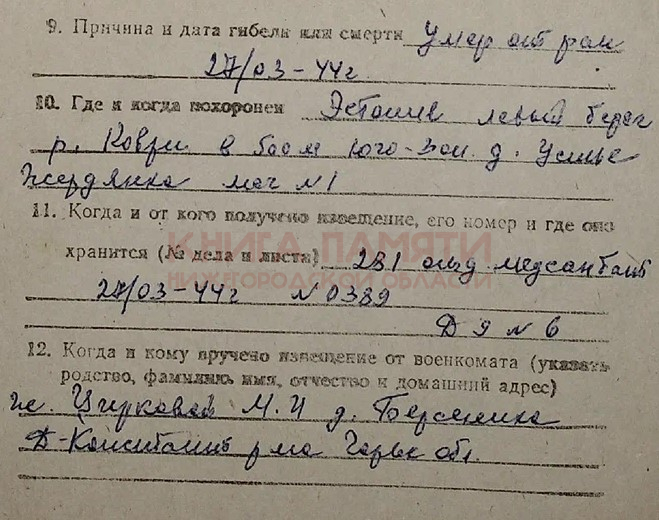 9. Причина и дата гибели или смерти Умер от ран
27/03-44г
10. Где и когда похоронен Эстония левый берег
р. в юго-зап. д. Усмье
Жердянка мог №1
11. Когда и от кого получено извещение, его номер и где оно
КНИГА ПАМЯТИ
хранится (№ дела и листа) 281 медсанбат
НИЖЕГОРОДСКОЙ ОБЛАСТИ
27/03-44г №0389
Д 9 № 6
12. Когда и кому вручено извещение от военкомата (указать
родство, фамилию, имя, отчество и домашний адрес)
Цирковой М. И д.
Д-Константин р-на Горьк обл.